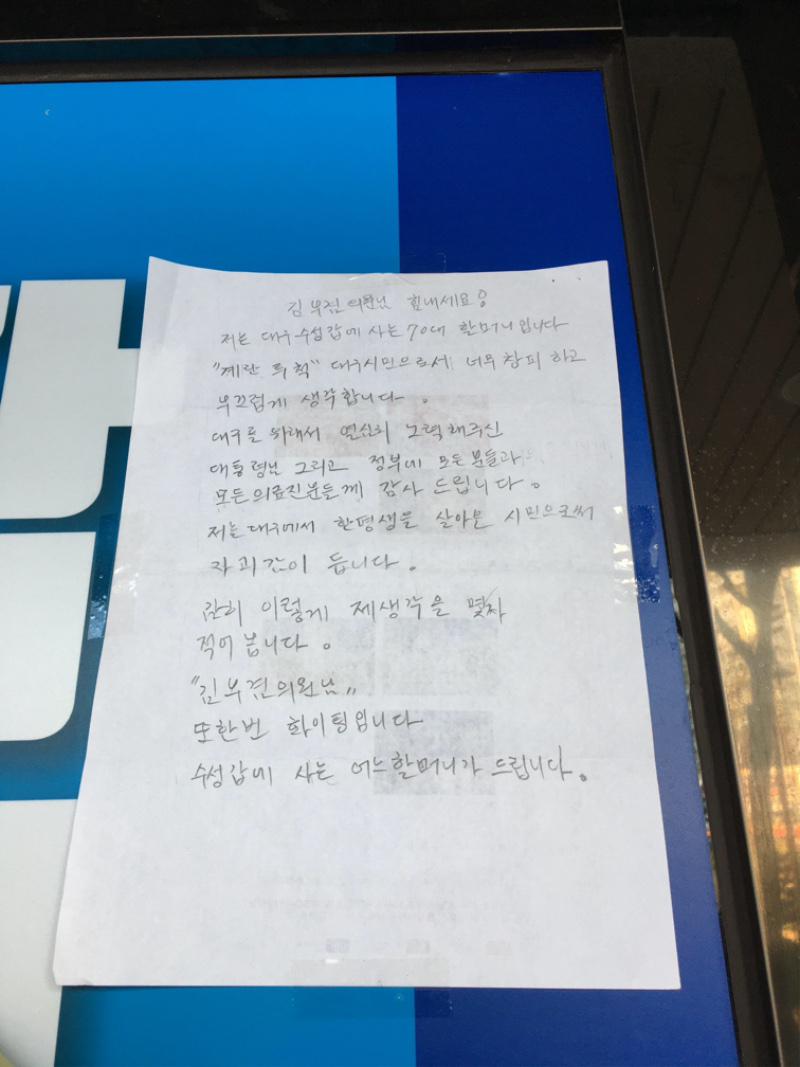 김부겸 의원님 힘내세요!
저는 대구 수성갑에 사는 70대 할머니입니다
"계란 투척" 대구시민으로서 너무 참피 하고
부끄럽게 생각합니다.
대구를 위해서 열심히 노력해주신
대통령님 그리고 정부에 모든분들과
모든의료진분들께 감사 드립니다.
저는 대구에서 한평생을 살아온 시민으로써
자괴감이 듭니다.
감히 이렇게 제생각을 몇자
적어 봅니다.
"김부겸의원님"
또한번 화이팅입니다
수성갑에 사는 어느할머니가 드립니다.